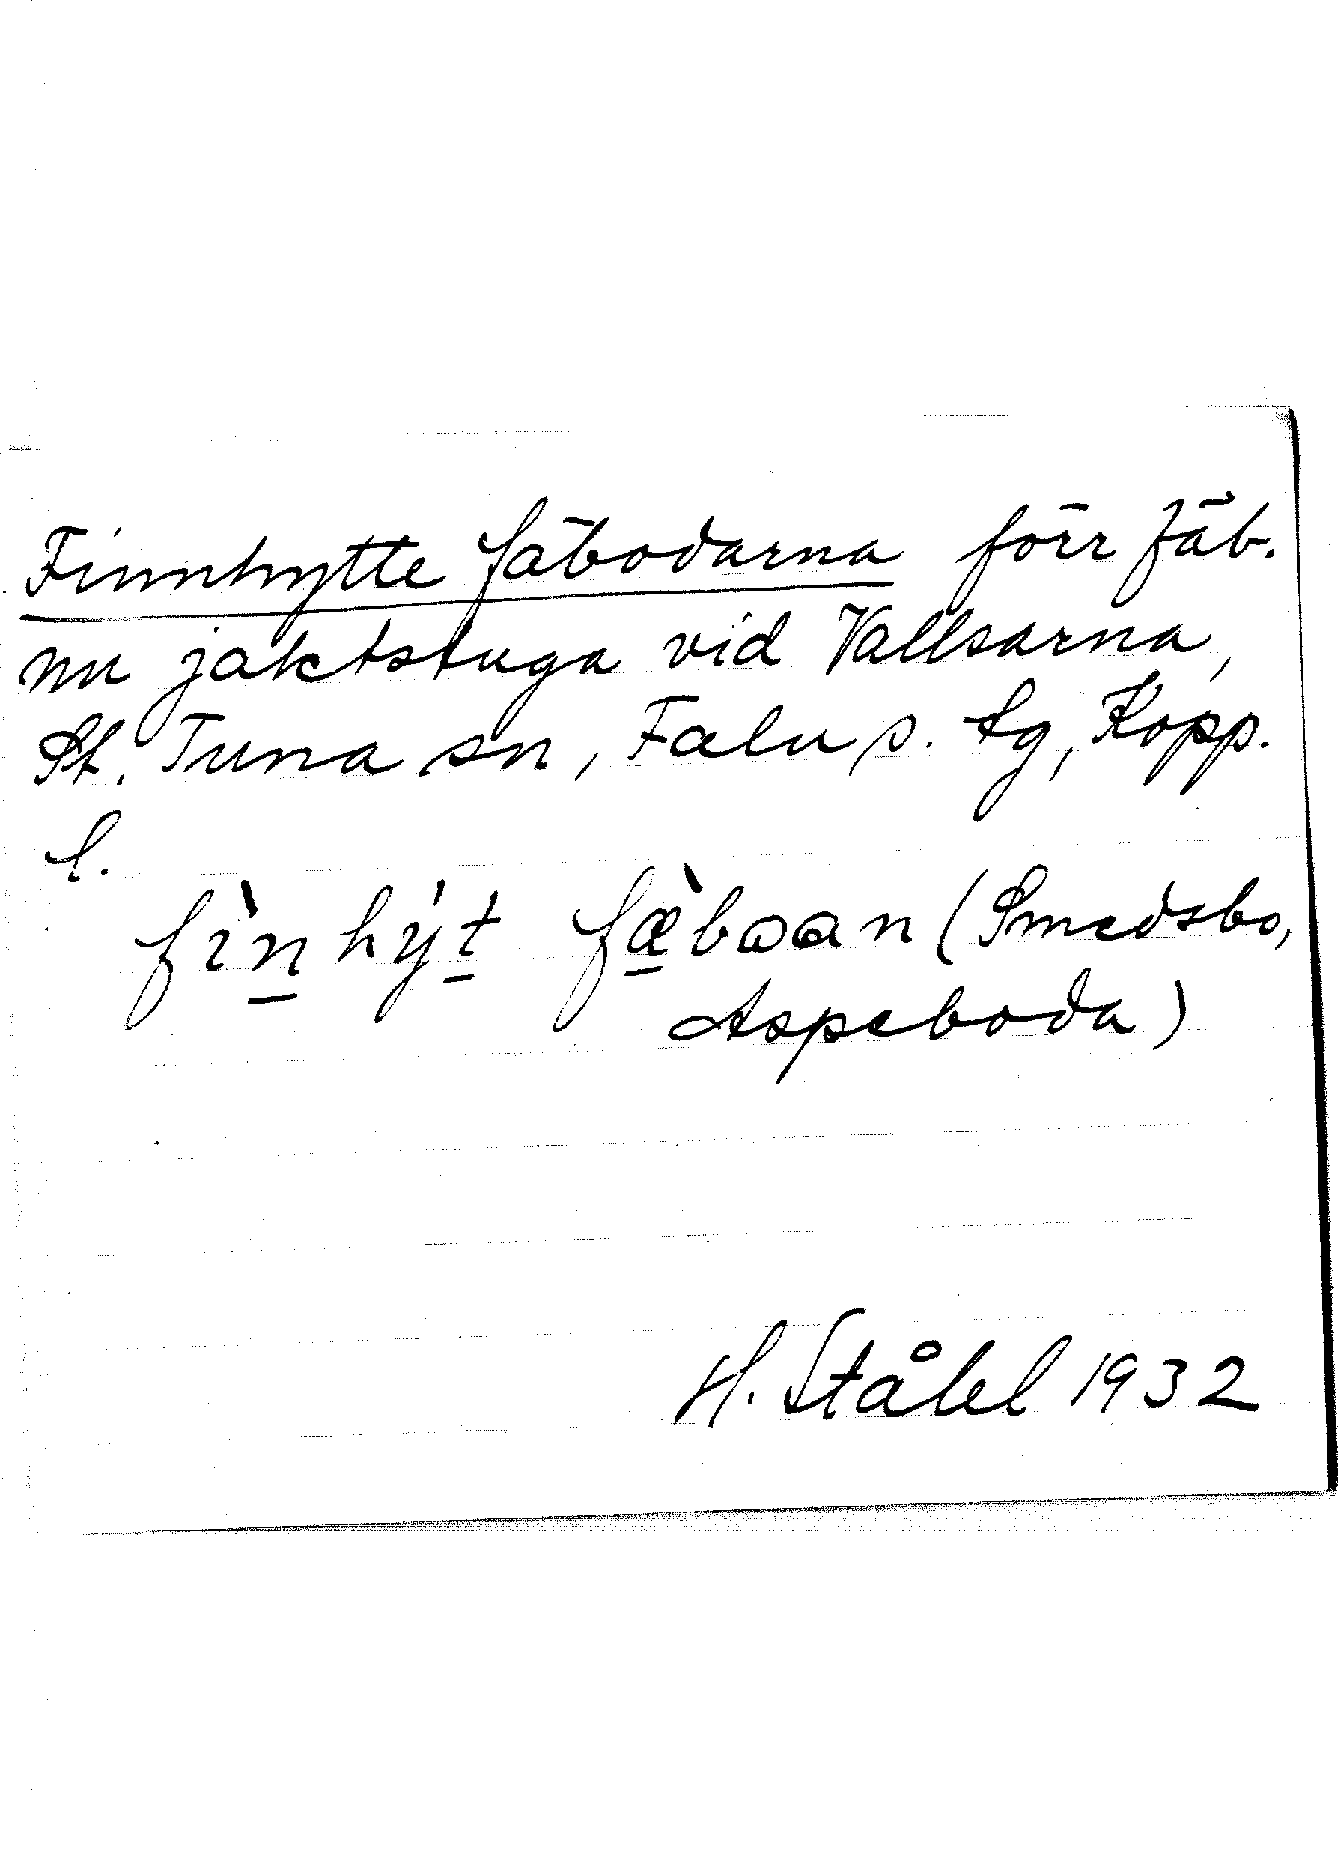 Finnhytte fäbodarna förr fäb.
nu jaktstuga vid Vallsarna,
St. Tuna sn, Falu s. tg, Kopp.
l.
fìnhýt fæ̀bωαn (Smedsbo,
Aspeboda)
H. Ståhl 1932